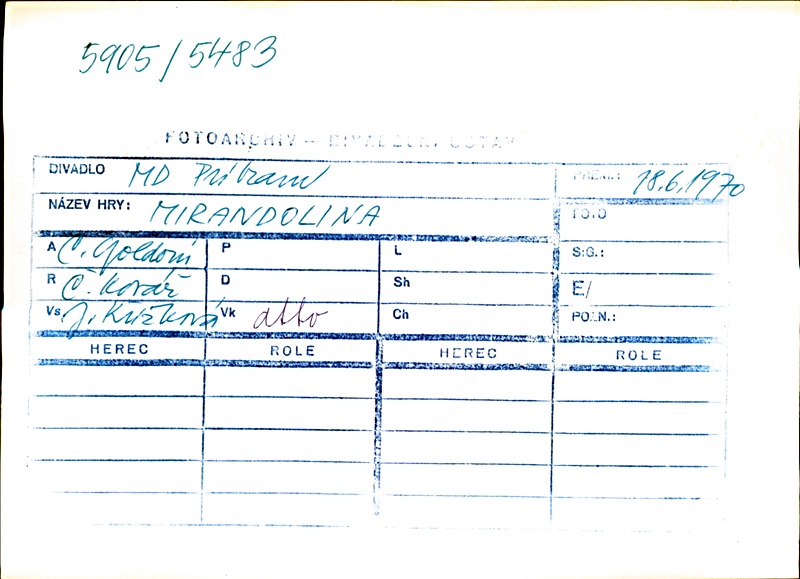 5905/5483
FOTOARCHIV – DIVADELNÍ ÚSTAV
DIVADLO MD Příbram PREM.: 18.6.1970
NÁZEV HRY: MIRANDOLINA FOTO
A C. Goldoni P L S.G.:
R Č. Kovář D Sh E/
Vs J. Křížková Vk atto Ch POZN.:
HEREC ROLE HEREC ROLE